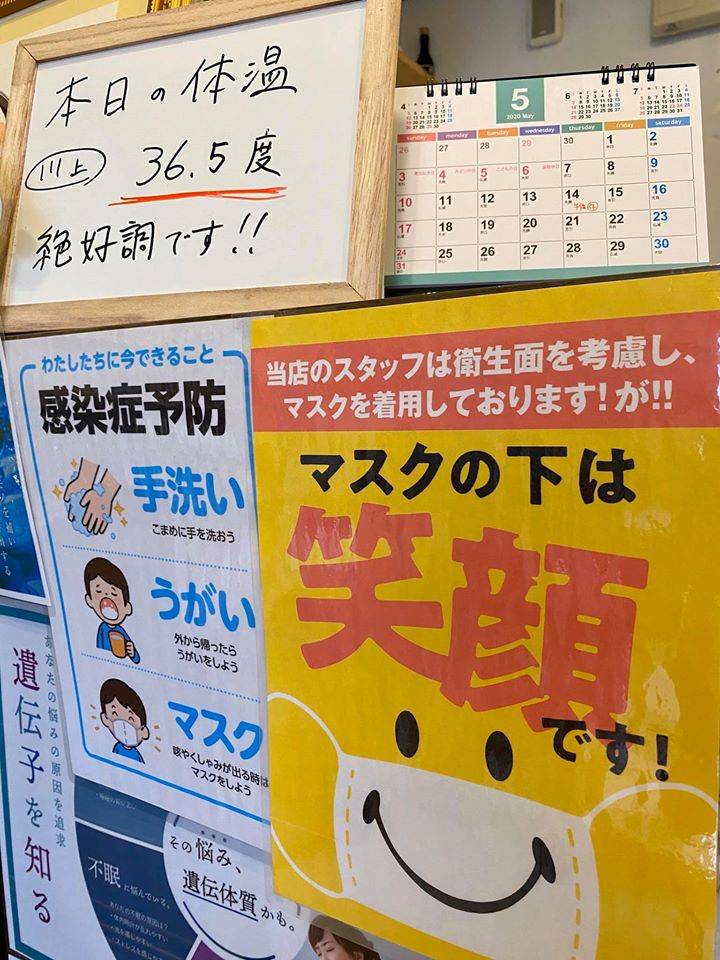 本日の体温
川上 36.5度
絶好調です!!
5
2020 May
sunday monday tuesday wednesday thursday friday saturday
26 27 28 29 30 1 2
3 4 5 6 7 8 9
10 11 12 13 14 15 16
17 18 19 20 21 22 23
24 25 26 27 28 29 30
31
わたしたちに今できること
感染症予防
手洗い
こまめに手を洗おう
うがい
外から帰ったら
うがいをしよう
マスク
咳やくしゃみが出る時は
マスクをしよう
当店のスタッフは衛生面を考慮し、
マスクを着用しております!が!!
マスクの下は
笑顔
です!
あなたの悩みの原因を追求
遺伝子を知る
不眠に悩んでいる。
あなたの不眠の原因は?
その悩み、
遺伝体質かも。